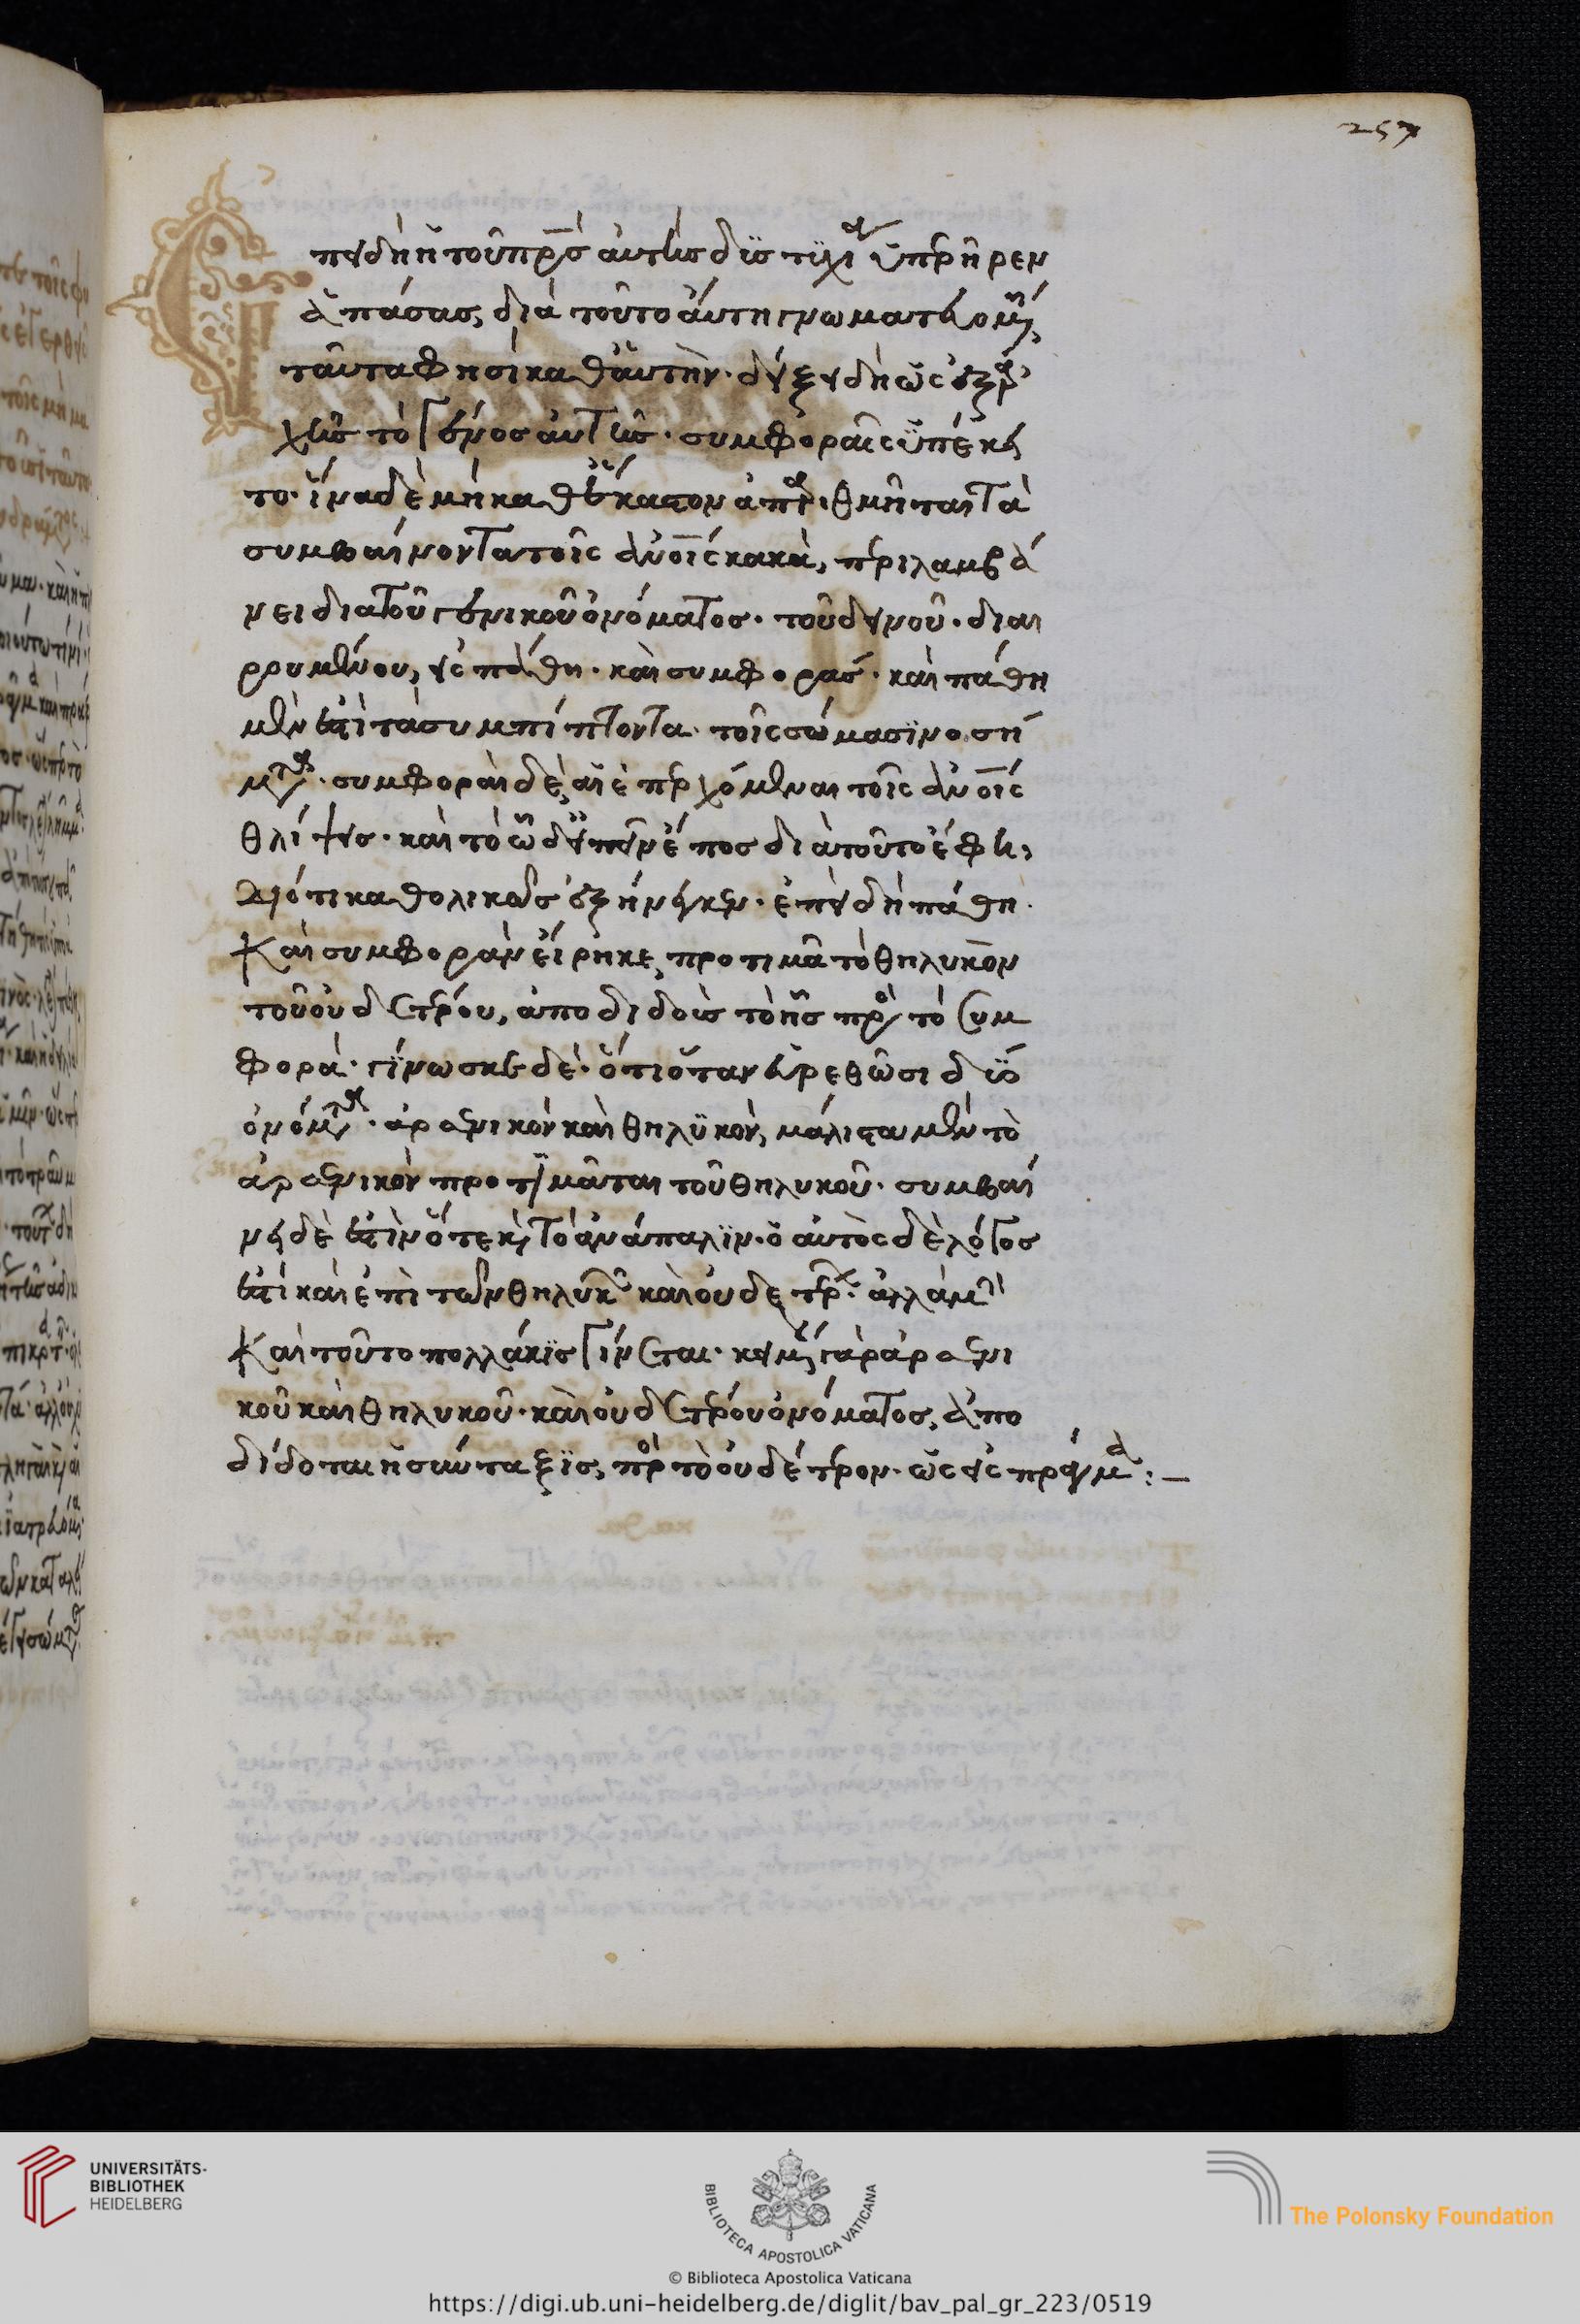 257
Ἐπειδὴ ἡ τοῦ πρς αὐτῆς δυστυχία ὑπερῆρεν
ἁπάσας, διὰ τοῦτο αὕτη γνωματευομένη
ταῦτα φησὶ καθ' αὑτήν. δείξει δὴ ὡς ἐξ ἀρ
χῆς τὸ γένος αὐτῆς. συμφοραῖς ὑπέκει
το. ἵνα δὲ μὴ καθ' ἕκαστον ἀπαριθμῆται τὰ
συμβαίνοντα τοῖς ἀνοις κακὰ, περιλαμβά
νει διὰ τοῦ γενικοῦ ὀνόματος. τοῦ δεινοῦ. διαι
ρουμένου, εἰς πάθη. καὶ συμφοράς. καὶ πάθη
μέν ἐστι τὰ συμπίπτοντα τοῖς σώμασι νοσή
ματα. συμφοραὶ δὲ, αἱ ἐπερχόμεναι τοῖς ἀνοις
θλίψεις. καὶ τὸ ὧδ' εἰπεῖν ἔπος διὰ τοῦτο ἔφη,
διότι καθολικῶς ἐξήνεγκεν. ἐπειδὴ πάθη
καὶ συμφορὰν εἴρηκε, προτιμᾶ τὸ θηλυκὸν
τοῦ οὐδετέρου, ἀποδιδοὺς τὸ ἧς πρὸς τὸ συμ
φορά. γίνωσκε δέ. ὅτι ὅταν εὑρεθῶσι δύο
ὀνόματα. ἀρσενικὸν καὶ θηλυκὸν, μάλιστα μὲν τὸ
ἀρσενικὸν προτιμᾶται τοῦ θηλυκοῦ. συμβαί
νει δὲ ἔστιν ὅτε καὶ τὸ ἀνάπαλιν. ὁ αὐτὸς δὲ λόγος
ἐστὶ καὶ ἐπὶ τῶν θηλυκῶν καὶ οὐδετέρων. ἀλλὰ μὴν
καὶ τοῦτο πολλάκις γίνεται. κειμένου γὰρ ἀρσενι
κοῦ καὶ θηλυκοῦ. καὶ οὐδετέρου ὀνόματος, ἀπο
δίδοται ἡ σύνταξις, πρὸς τὸ οὐδέτερον. ὡς εἰς πρᾶγμα:—
UNIVERSITÄTS-
BIBLIOTHEK
HEIDELBERG
BIBLIOTECA APOSTOLICA VATICANA
The Polonsky Foundation
© Biblioteca Apostolica Vaticana
https://digi.ub.uni-heidelberg.de/diglit/bav_pal_gr_223/0519